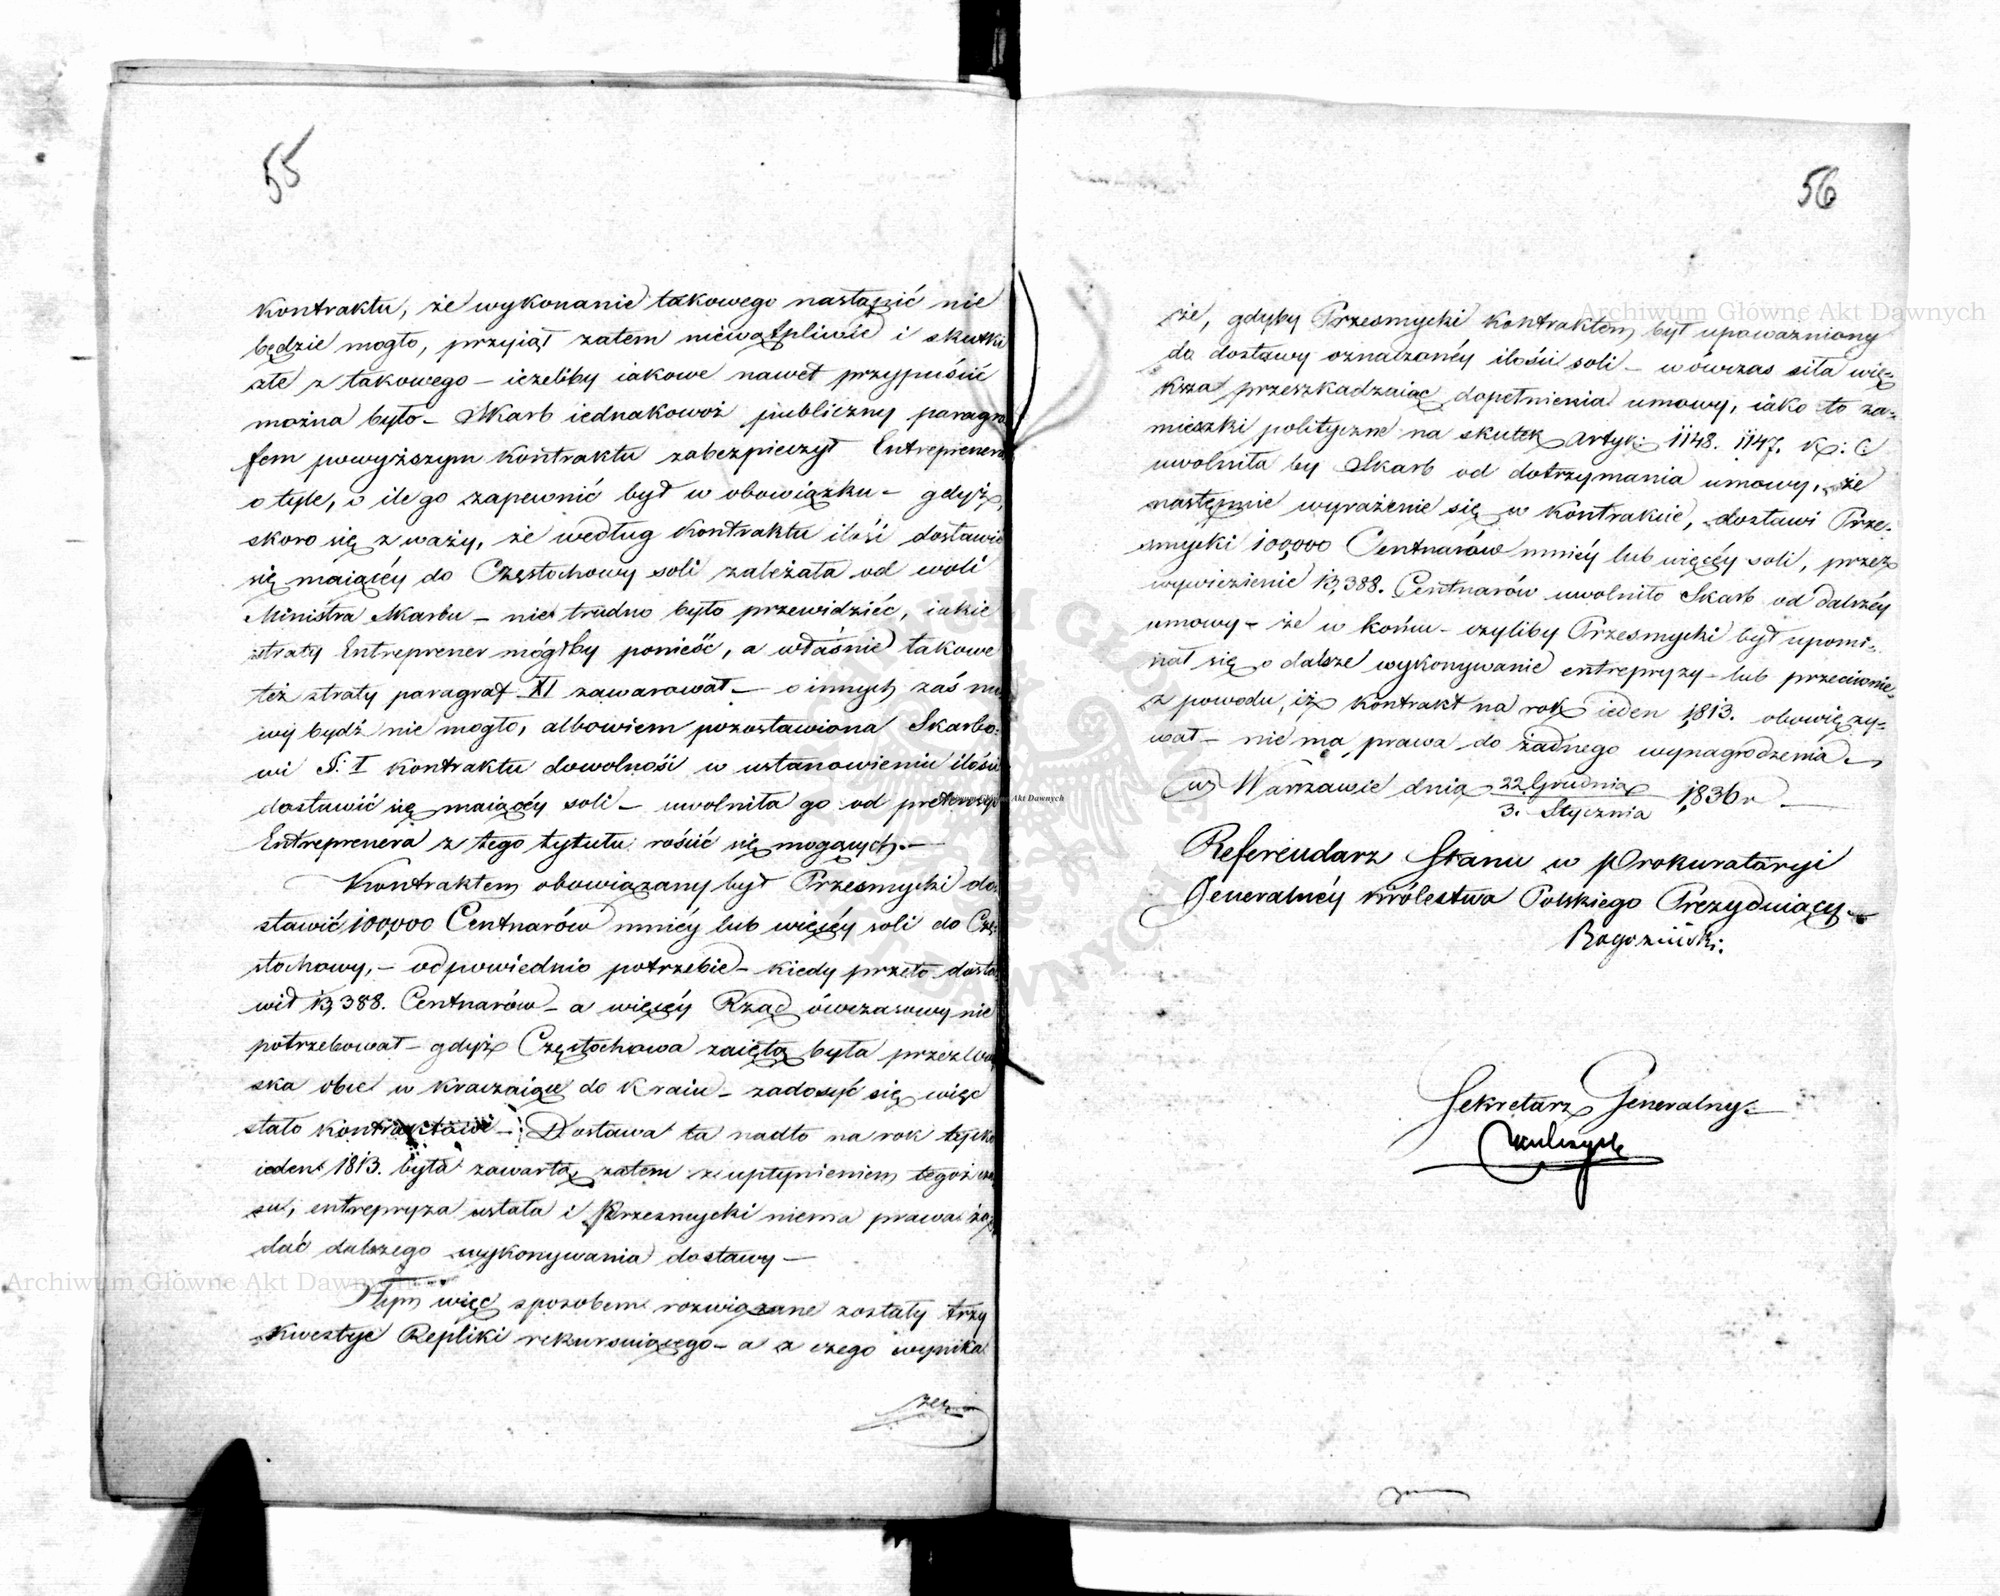 55
kontraktu, że wykonanie takowego nastąpić nie
będzie mogło, przyiął zatem niewątpliwie i skutki
złe z takowego – ieżeliby iakowe nawet przypuścić
można było – Skarb iednakowoż publiczny paragra
fem powyższym kontraktu zabezpieczył Entreprenera
o tyle, o ile go zapewnić był w obowiązku – gdyż,
skoro się zważy, że według kontraktu ilość dostawić
się maiącéy do Częstochowy soli zależała od woli
Ministra Skarbu – nie trudno było przewidzieć, iakie
straty Entreprener mógłby ponieść, a właśnie takowe
też straty paragraf XI zawarował – o innych zaś mo
wy bydź nie mogło, albowiem pozostawiona Skarbo
wi §: I kontraktu dowolność w ustanowieniu ilości
dostawić się maiącéy soli – uwolniła go od pretensyi
Entreprenera z tego tytułu rościć się mogących. –
Kontraktem obowiązany był Przesmycki do
stawić 100,000 Centnarów mniéy lub więcéy soli do Czę
stochowy, – odpowiednio potrzebie – kiedy przeto dosta
wił 13,388. Centnarów – a więcéy Rząd ówczasowy nie
potrzebował – gdyż Częstochowa zaiętą była przez woy
ska obce wkraczaiące do kraiu – zadosyć się więc
stało kontraktowi – Dostawa ta nadto na rok tylko
ieden 1813. była zawartą, zatem z upłynieniem tegoż cza
su, entrepryza ustała i Przesmycki niema prawa żą
dać dalszego wykonywania dostawy –
Tym więc sposobem rozwiązane zostały trzy
kwestye Repliki rekursuiącego – a z czego wynika
że,
56
że, gdyby Przesmycki kontraktem był upoważniony
do dostawy oznaczonéy ilości soli – wówczas siła wię-
ksza przeszkadzaiąc dopełnienia umowy, iako to za-
mieszki polityczne na skutek Artyk: 1148. 1147. K: C:
uwolniła by Skarb od dotrzymania umowy, że
następnie wyrażenie się w kontrakcie, dostawi Prze-
smycki 100,000 Centnarów mniéy lub więcéy soli, przez
wywiezienie 13,388. Centnarów uwolniło Skarb od dalszéy
umowy – że w końcu – czyliby Przesmycki był upomi-
nał się o dalsze wykonywanie entrepryzy – lub przeciwnie,
z powodu, iż kontrakt na rok ieden 1813. obowięzy-
wał – nie ma prawa do żadnego wynagrodzenia –
w Warszawie dnia 22 Grudnia / 3. Stycznia 1836 r –
Referendarz Stanu w Prokuratoryi
Generalnéy Królestwa Polskiego Prezyduiący –
Sekretarz Generalny
Archiwum Główne Akt Dawnych
Archiwum Główne Akt Dawnych